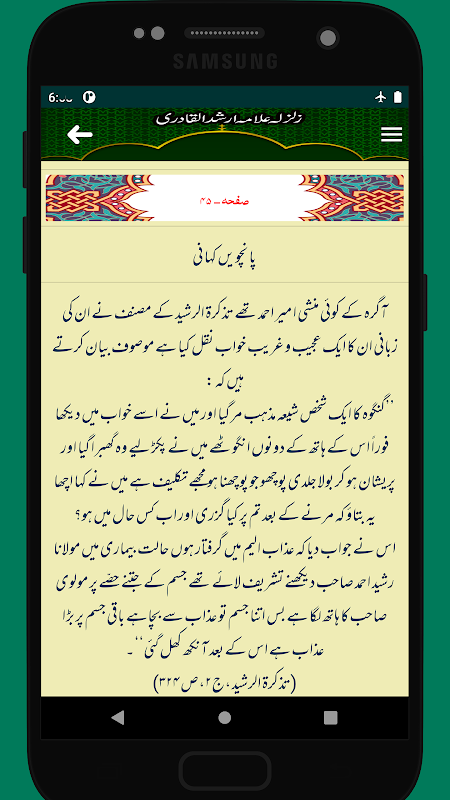 SAMSUNG
زلزلہ علامہ ارشد القادری
صفحہ-۴۵
پانچویں کہانی
آگرہ کے کوئی منشی امیر احمد تھے تذکرۃ الرشید کے مصنف نے ان کی
زبانی ان کا ایک عجیب و غریب خواب نقل کیا ہے موصوف بیان کرتے
ہیں کہ :
’’گنگوہ کا ایک شخص شیعہ مذہب مر گیا اور میں نے اسے خواب میں دیکھا
فوراً اس کے ہاتھ کے دونوں انگوٹھے میں نے پکڑ لیے وہ گھبرا گیا اور
پریشان ہو کر بولا جلدی پوچھو جو پوچھنا ہو مجھے تکلیف ہے میں نے کہا اچھا
یہ بتاؤ کہ مرنے کے بعد تم پر کیا گزری اور اب کس حال میں ہو؟
اس نے جواب دیا کہ عذاب الیم میں گرفتار ہوں حالت بیماری میں مولانا
رشید احمد صاحب دیکھنے تشریف لائے تھے جسم کے جتنے حصّے پر مولوی
صاحب کا ہاتھ لگا ہے بس اتنا جسم تو عذاب سے بچا ہے باقی جسم پر بڑا
عذاب ہے اس کے بعد آنکھ کھل گئی‘‘۔
(تذکرۃ الرشید، ج ۲، ص ۳۲۴)